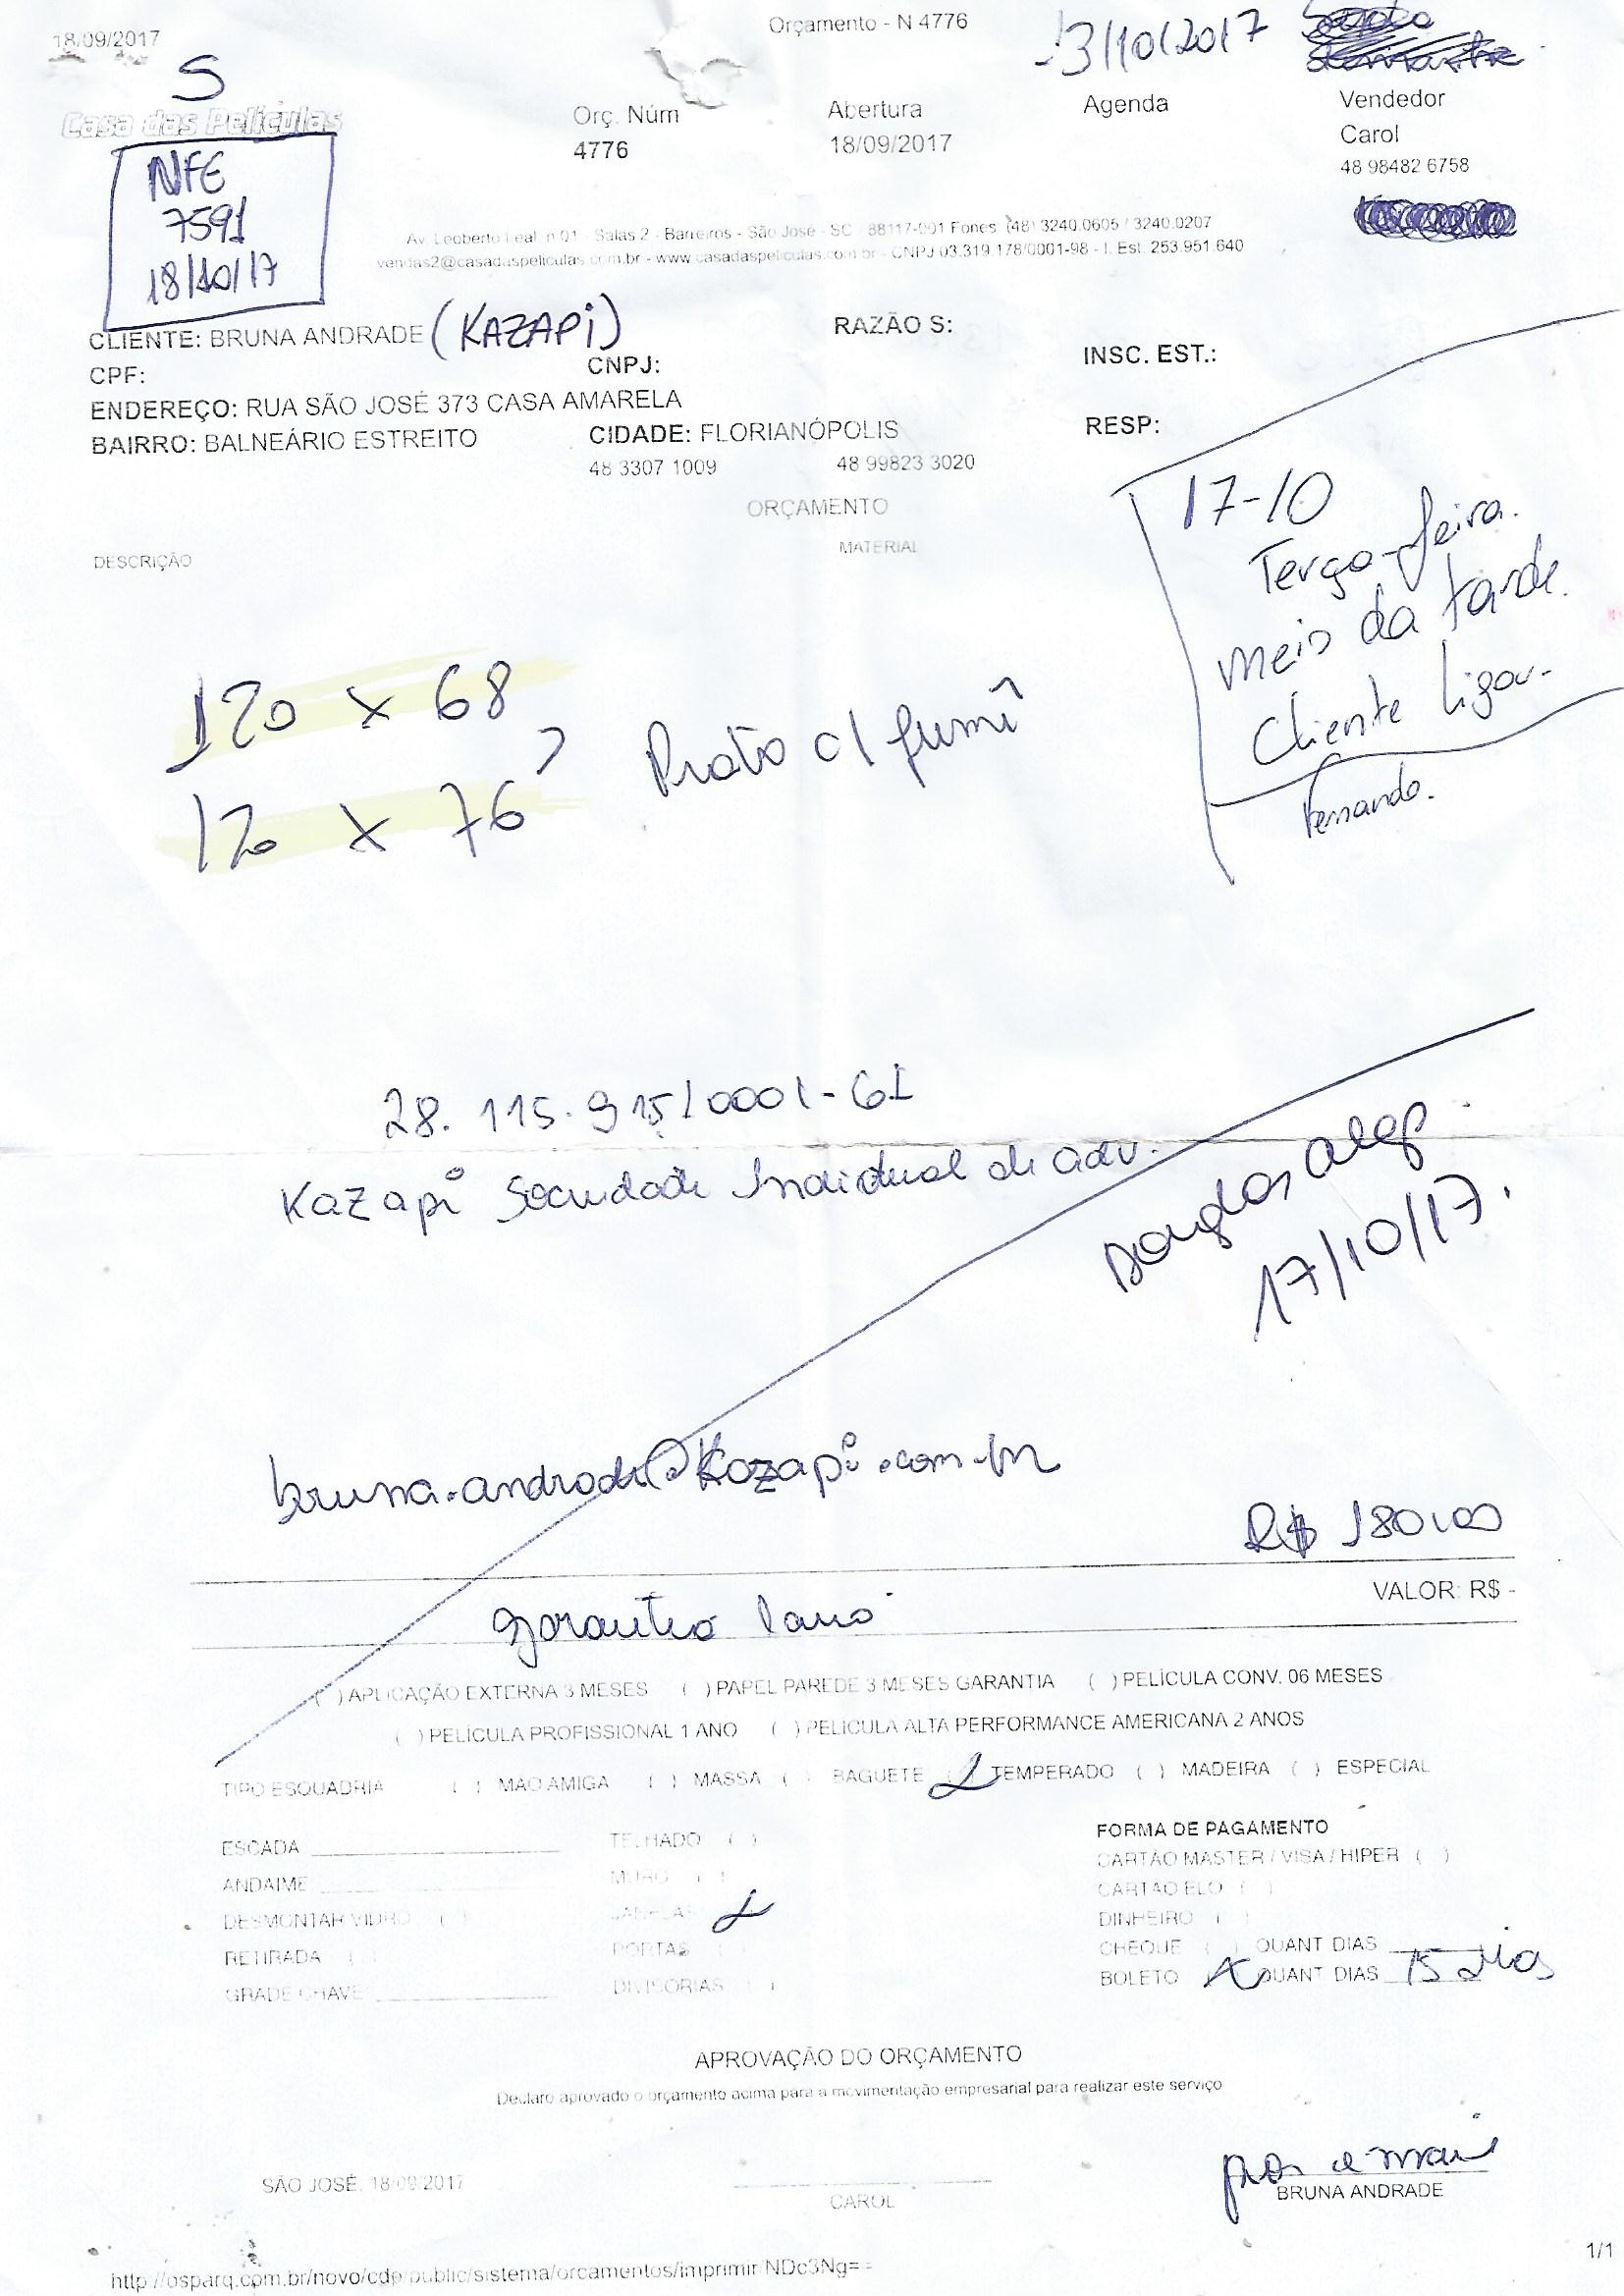 18/09/2017
Orçamento - N 4776
13/10/2017
S
Casa das Películas
Orç. Núm
4776
Abertura
18/09/2017
Agenda
Vendedor
Carol
48 98482 6758
NFE
7591
18/10/17
Av. Leoberto Leal, n 01 - Salas 2 - Barreiros - São José - SC - 88117-001 Fones: (48) 3240.0605 / 3240.0207
vendas2@casadaspeliculas.com.br - www.casadaspeliculas.com.br - CNPJ 03.319.178/0001-98 - I. Est. 253.951.640
CLIENTE: BRUNA ANDRADE (KAZAPi)
RAZÃO S:
CPF:
CNPJ:
INSC. EST.:
ENDEREÇO: RUA SÃO JOSÉ 373 CASA AMARELA
BAIRRO: BALNEÁRIO ESTREITO
CIDADE: FLORIANÓPOLIS
RESP:
48 3307 1009
48 99823 3020
ORÇAMENTO
DESCRIÇÃO
MATERIAL
17-10
Terça-feira.
meio da tarde.
Cliente ligou.
Fernando.
120 x 68
120 x 76
Prata c/ fumê
28.115.915/0001-61
Kazapi Sociedade Individual de adv.
Douglas
17/10/17.
bruna.andrade@Kazapi.com.br
R$ 180,00
VALOR: R$ -
garantia 1 ano
( ) APLICAÇÃO EXTERNA 3 MESES ( ) PAPEL PAREDE 3 MESES GARANTIA ( ) PELÍCULA CONV. 06 MESES
( ) PELÍCULA PROFISSIONAL 1 ANO ( ) PELÍCULA ALTA PERFORMANCE AMERICANA 2 ANOS
TIPO ESQUADRIA ( ) MAO AMIGA ( ) MASSA ( ) BAGUETE (X) TEMPERADO ( ) MADEIRA ( ) ESPECIAL
ESCADA
TELHADO ( )
FORMA DE PAGAMENTO
CARTÃO MASTER / VISA / HIPER ( )
ANDAIME
MURO ( )
CARTAO ELO ( )
DESMONTAR VIDRO ( )
JANELAS X
DINHEIRO ( )
RETIRADA ( )
PORTAS ( )
CHEQUE ( ) QUANT DIAS
GRADE CHAVE
DIVISORIAS ( )
BOLETO X QUANT DIAS 15 dias
APROVAÇÃO DO ORÇAMENTO
Declaro aprovado o orçamento acima para a movimentação empresarial para realizar este serviço
SÃO JOSÉ, 18/09/2017
CAROL
por email
BRUNA ANDRADE
http://osparq.com.br/novo/cdp/public/sistema/orcamentos/imprimir/NDc3Ng==
1/1